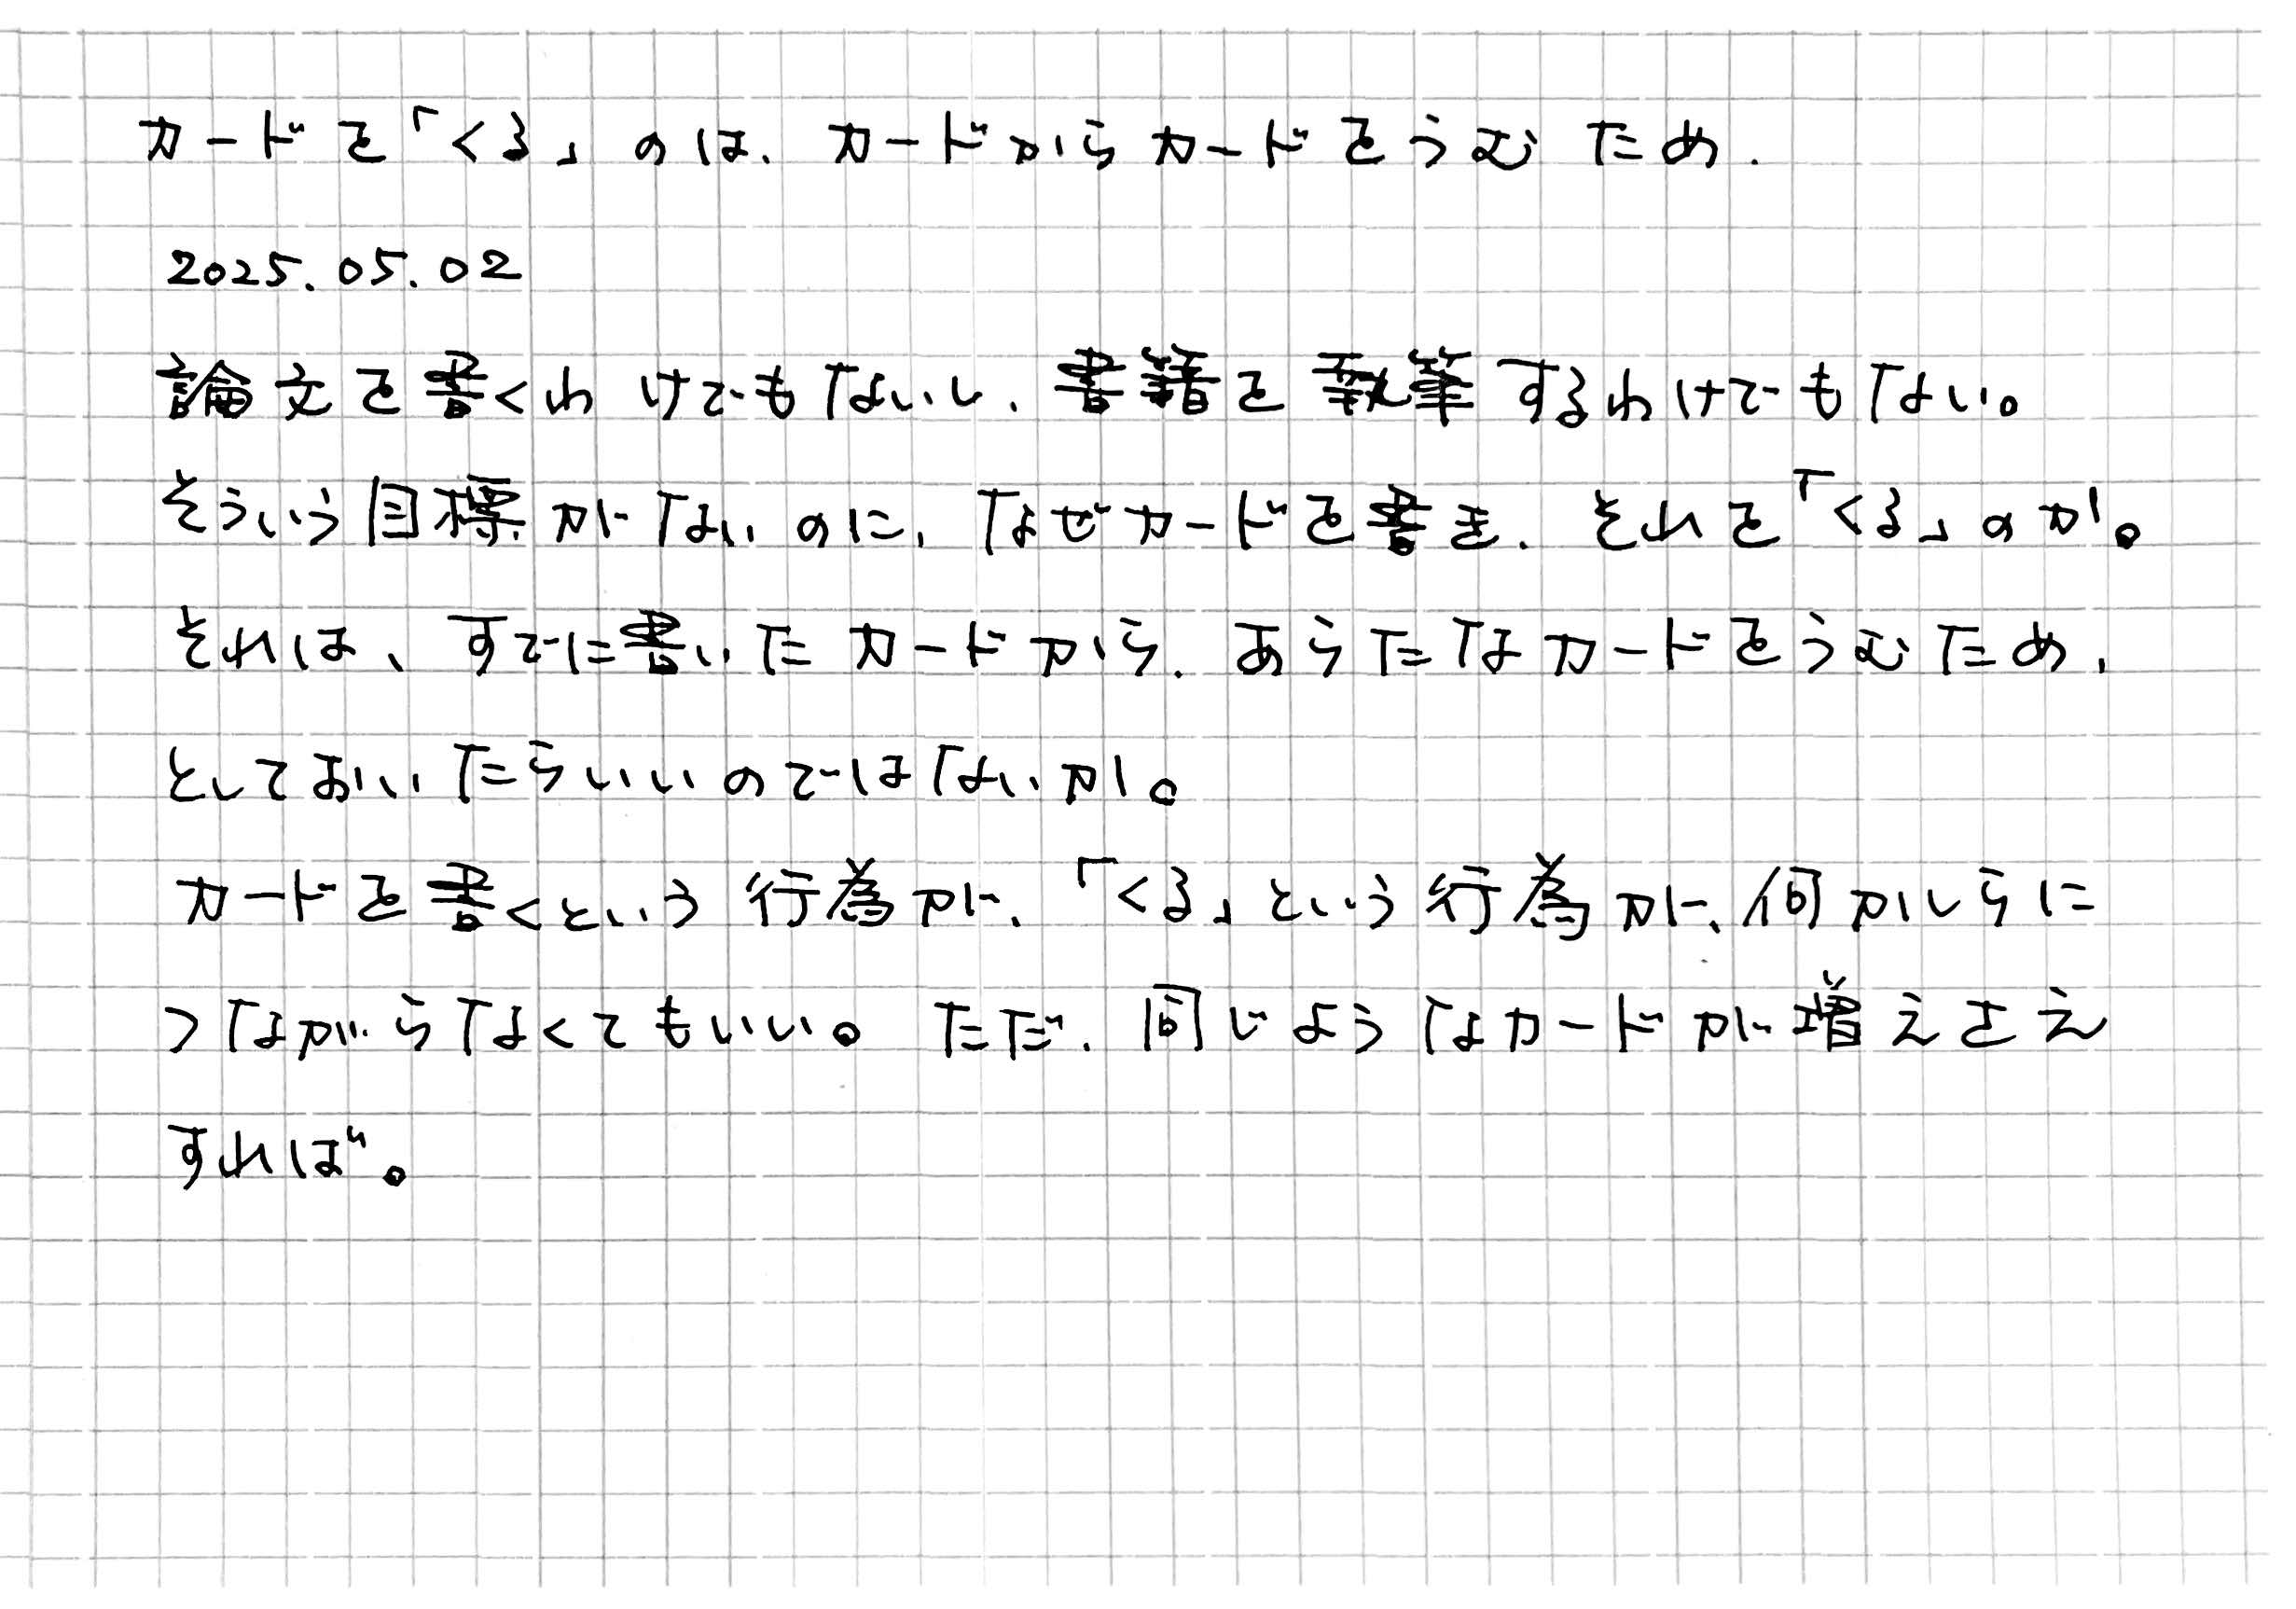 カードを「くる」のは、カードからカードをうむため.
2025.05.02
論文を書くわけでもないし、書籍を執筆するわけでもない。
そういう目標がないのに、なぜカードを書き、それを「くる」のか。
それは、すでに書いたカードから、あらたなカードをうむため、
としておいたらいいのではないか。
カードを書くという行為が、「くる」という行為が、何かしらに
つながらなくてもいい。ただ、同じようなカードが増えさえ
すれば。